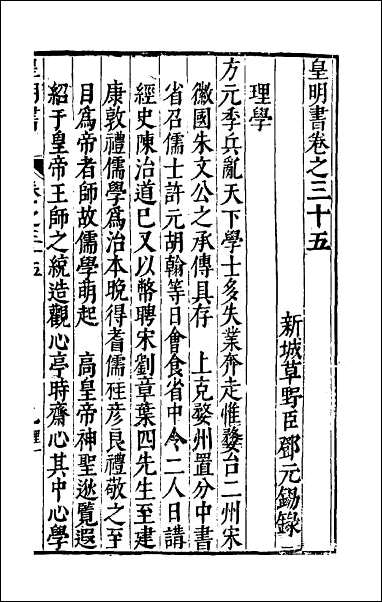 皇明書卷之三十五
新城草野臣鄧元錫錄
理學
方元季兵亂天下學士多失業奔走惟婺台二州宋
徽國朱文公之承傳具存　上克婺州置分中書
省召儒士許元胡翰等日會食省中令二人日講
經史陳治道已又以幣聘宋劉章葉四先生至建
康敦禮儒學爲治本晚得耆儒桂彦良禮敬之至
目爲帝者師故儒學萌起　高皇帝神聖逖覽遐
紹于皇帝王師之統造觀心亭時齋心其中心學
皇明書
卷之三十五
理一